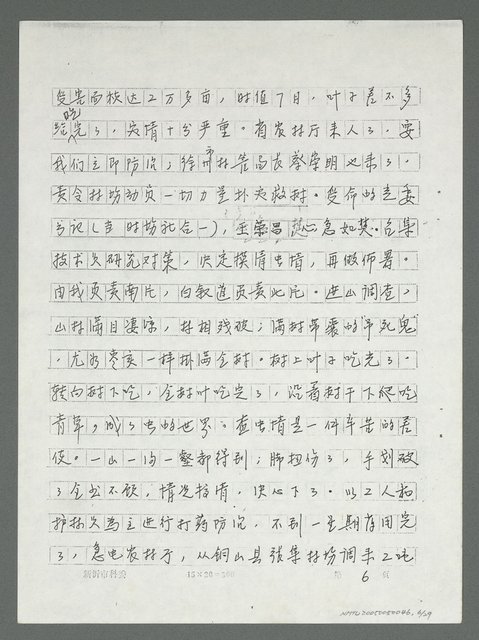 受害面积达2万多亩，时值7月，叶子差不多
吃
给光了，灾情十分严重。省农林厅来人了，要
我们立即防治；徐市林管局长蔡学明也来了。
责令林场动员一切力量扑灭救树。受命的党委
书记（当时场社合一），王荣昌心急如焚。召集
技术员研究对策，决定摸清虫情，再做佈署。
由我负责南片，白叙道负责北片。进山调查，
山林满目凄凉，林相残破；满树吊囊的吊死鬼
，尤如枣亥一样挂满全树。树上叶子吃光了。
转向树下吃，全树叶吃完了，沿着树干下爬吃
青草，成了虫的世界。查虫情是一件辛苦的差
使。一山一沟一壑都得到；脚扭伤了，手划破
了全当不顾，情况摸清，决心下了。以工人和
护林员为主进行打药防治，不到一星期库用完
了，急电农林厅，从铜山县张集林场调来2吨
新沂市科委 15×20=300 第 6 页
NMTL20050050046, 6/29